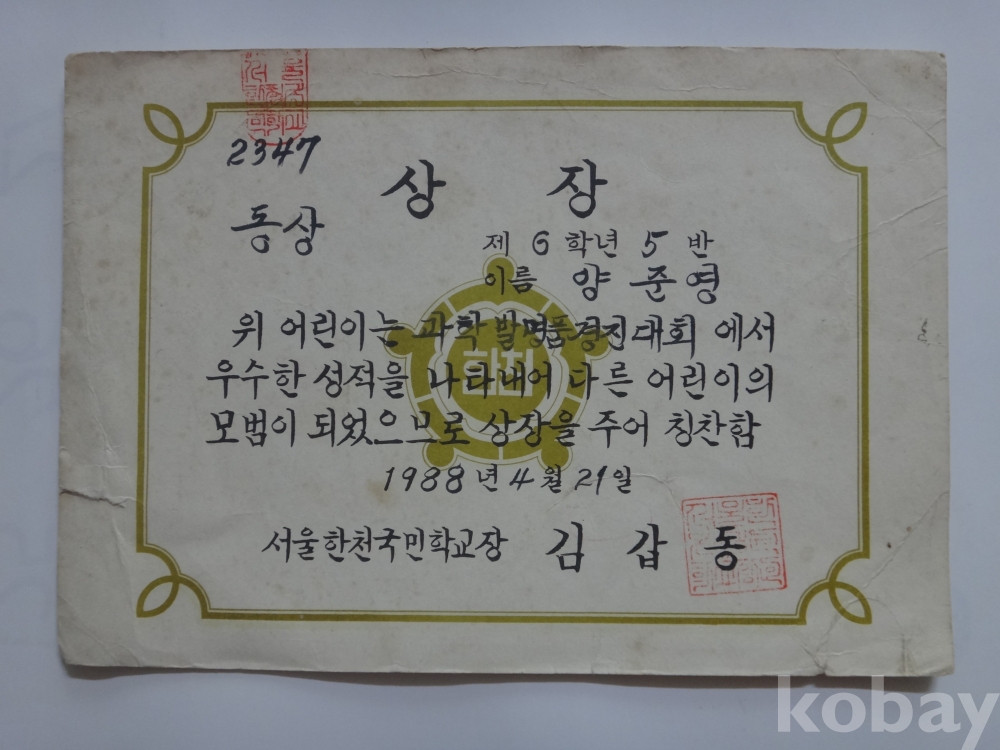 2347
상 장
동상
제 6 학년 5 반
이름 양 준 영
위 어린이는 과학발명품경진대회 에서
우수한 성적을 나타내어 다른 어린이의
모범이 되었으므로 상장을 주어 칭찬함
한천
1988 년 4 월 21 일
서울한천국민학교장 김 갑 동
kobay